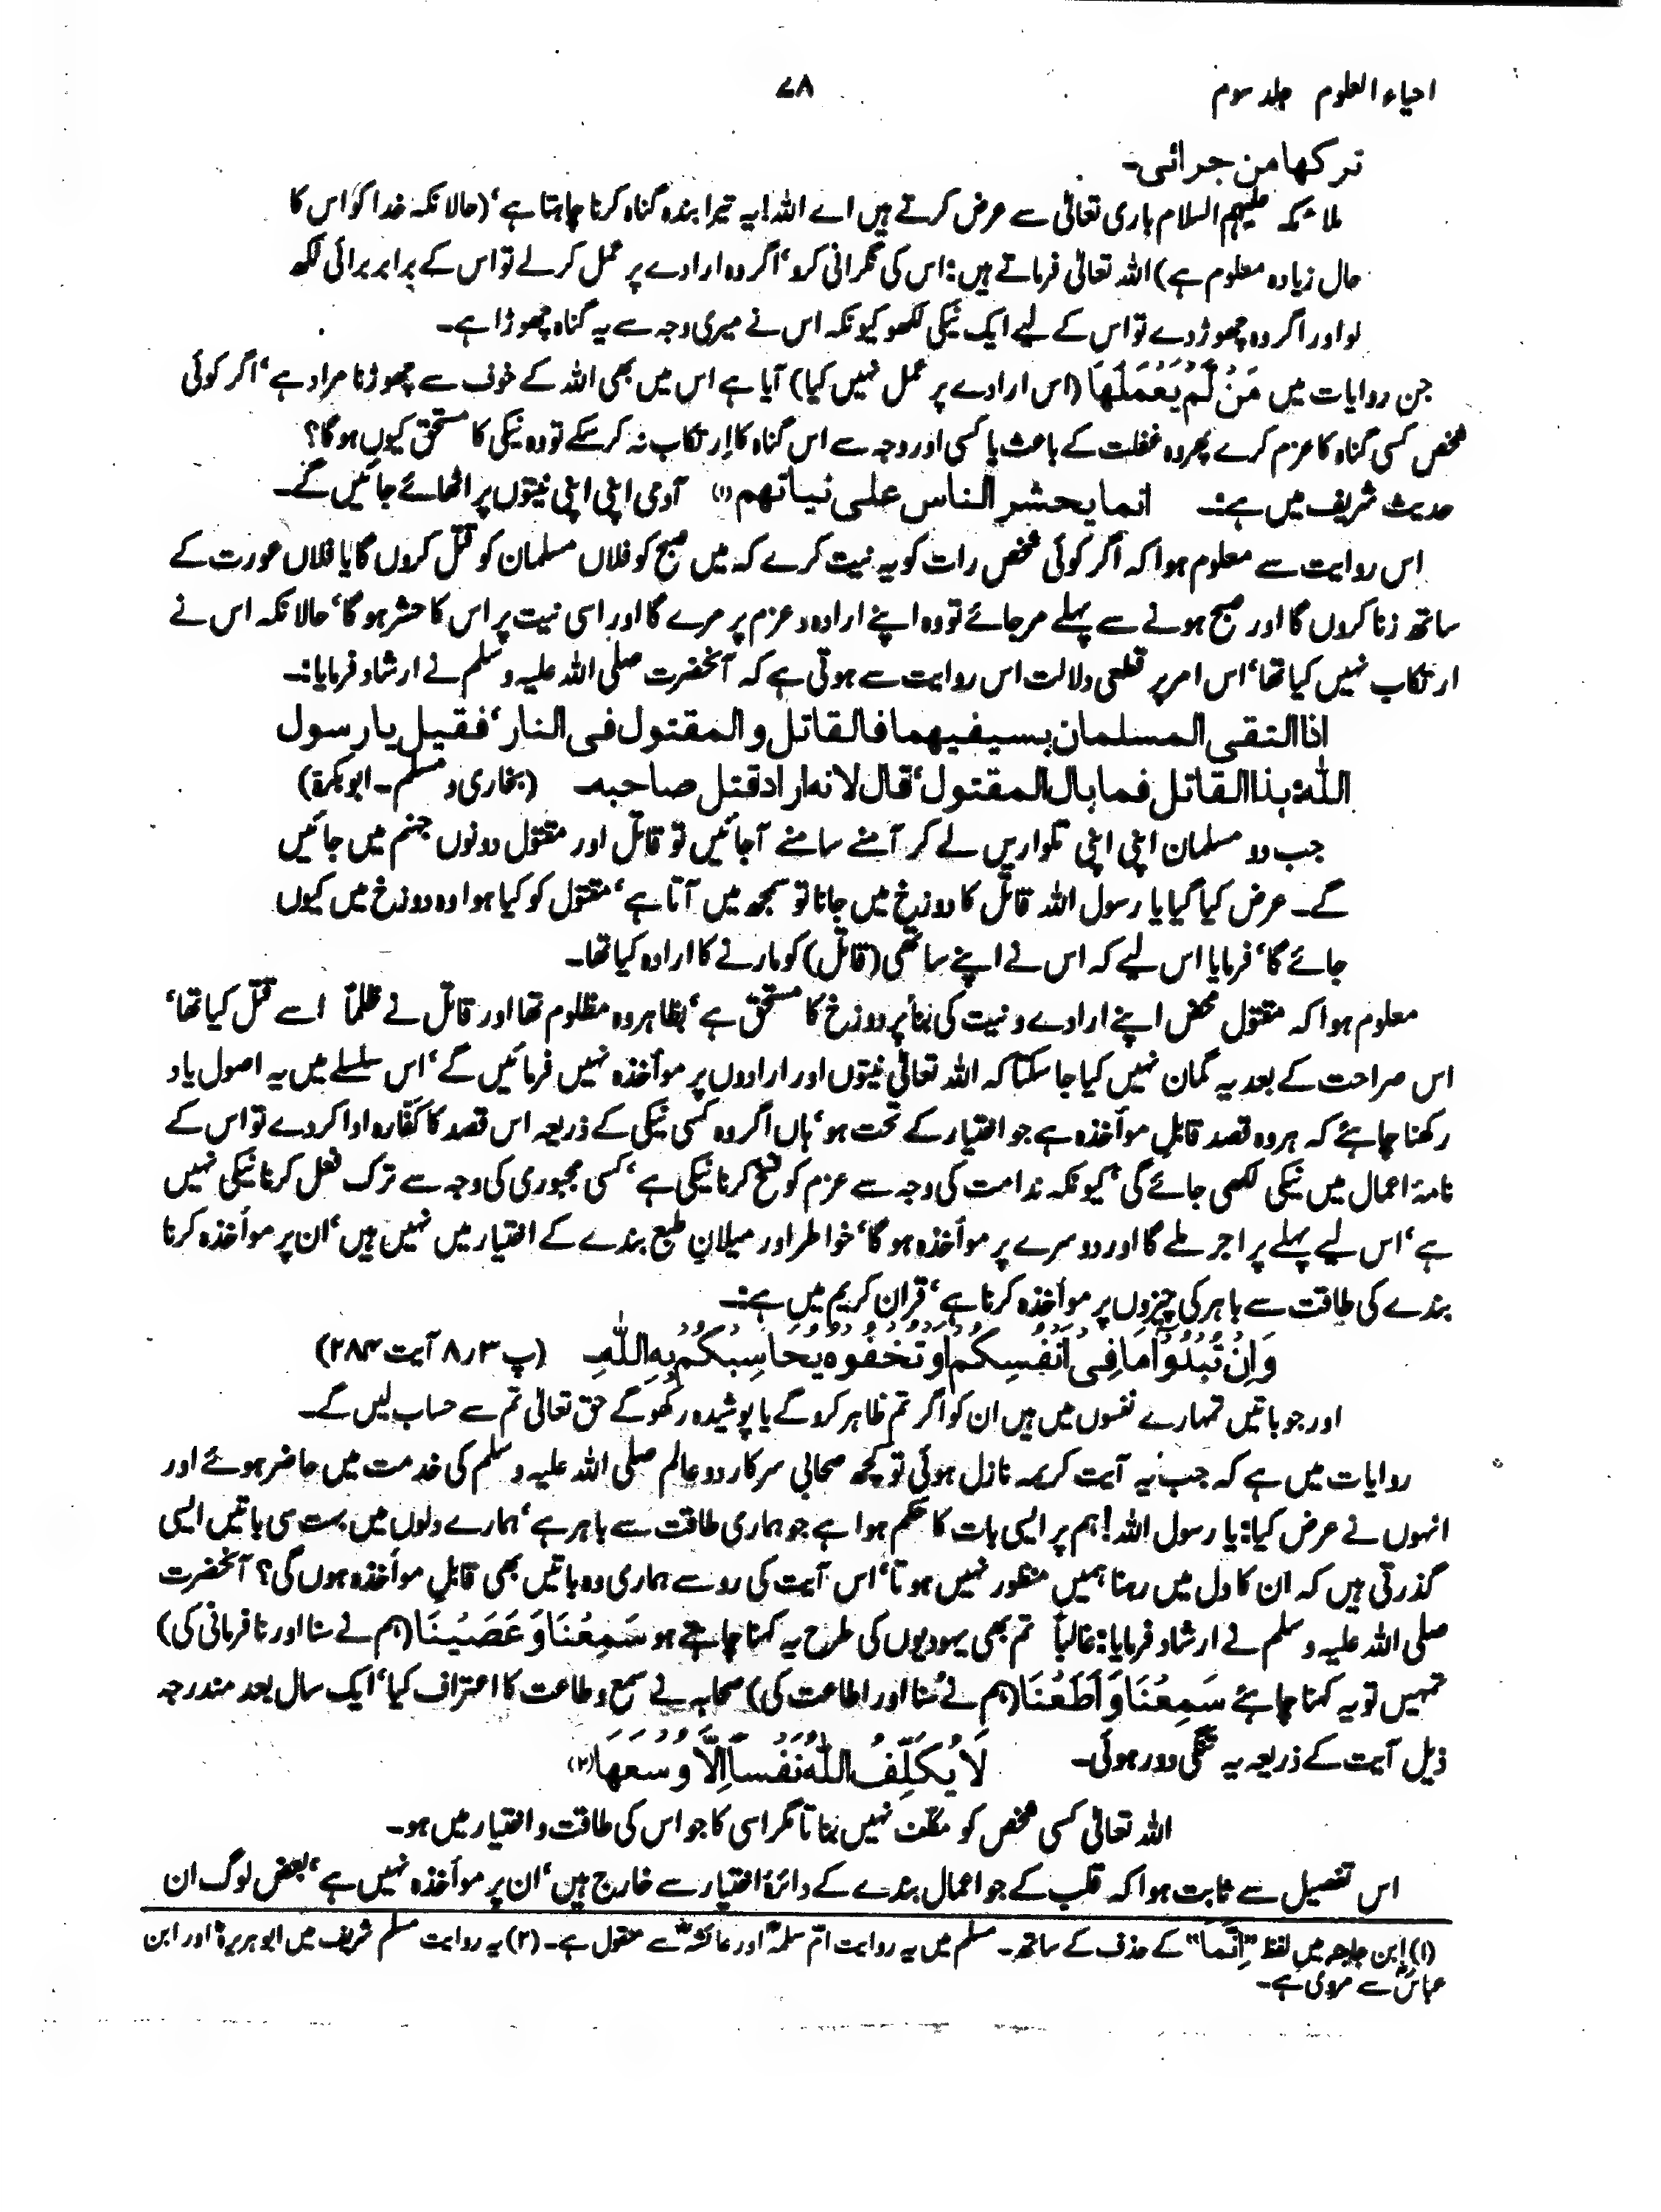 احیاء العلوم جلد سوم
۷۸
ترکھا من جرائی۔
ملائکہ علیہم السلام باری تعالیٰ سے عرض کرتے ہیں اے اللہ! یہ تیرا بندہ گناہ کرنا چاہتا ہے‘ (حالانکہ خدا کو اس کا
حال زیادہ معلوم ہے) اللہ تعالیٰ فرماتے ہیں: اس کی نگرانی کرو‘ اگر وہ ارادے پر عمل کرلے تو اس کے برابر برائی لکھ
لو اور اگر وہ چھوڑ دے تو اس کے لیے ایک نیکی لکھو کیونکہ اس نے میری وجہ سے یہ گناہ چھوڑا ہے۔
جن روایات میں مَنْ لَمْ یَعْمَلْهَا (اس ارادے پر عمل نہیں کیا) آیا ہے اس میں بھی اللہ کے خوف سے چھوڑنا مراد ہے‘ اگر کوئی
شخص کسی گناہ کا عزم کرے پھر وہ غفلت کے باعث یا کسی اور وجہ سے اس گناہ کا اِرتکاب نہ کرسکے تو وہ نیکی کا مستحق کیوں ہوگا؟
حدیث شریف میں ہے:۔ انما یحشر الناس علی نیاتهم (۱) آدمی اپنی اپنی نیتوں پر اٹھائے جائیں گے۔
اس روایت سے معلوم ہوا کہ اگر کوئی شخص رات کو یہ نیت کرے کہ میں صبح کو فلاں مسلمان کو قتل کروں گا یا فلاں عورت کے
ساتھ زنا کروں گا اور صبح ہونے سے پہلے مرجائے تو وہ اپنے ارادہ و عزم پر مرے گا اور اسی نیت پر اس کا حشر ہوگا‘ حالانکہ اس نے
ارتکاب نہیں کیا تھا‘ اس امر پر قطعی دلالت اس روایت سے ہوتی ہے کہ آنحضرت صلی اللہ علیہ وسلم نے ارشاد فرمایا:۔
اذا التقی المسلمان بسیفیهما فالقاتل والمقتول فی النار‘ فقیل یا رسول
اللّٰه: هذا القاتل فما بال المقتول‘ قال لانه اراد قتل صاحبه۔ (بخاری و مسلم۔ ابو بکرۃ)
جب دو مسلمان اپنی اپنی تلواریں لے کر آمنے سامنے آجائیں تو قاتل اور مقتول دونوں جہنم میں جائیں
گے۔ عرض کیا گیا یا رسول اللہ قاتل کا دوزخ میں جانا تو سمجھ میں آتا ہے‘ مقتول کو کیا ہوا وہ دوزخ میں کیوں
جائے گا‘ فرمایا اس لیے کہ اس نے اپنے ساتھی (قاتل) کو مارنے کا ارادہ کیا تھا۔
معلوم ہوا کہ مقتول محض اپنے ارادے و نیت کی بنا پر دوزخ کا مستحق ہے‘ بظاہر وہ مظلوم تھا اور قاتل نے ظلماً اسے قتل کیا تھا‘
اس صراحت کے بعد یہ گمان نہیں کیا جاسکتا کہ اللہ تعالیٰ نیتوں اور ارادوں پر مواخذہ نہیں فرمائیں گے‘ اس سلسلے میں یہ اصول یاد
رکھنا چاہئے کہ ہر وہ قصد قابلِ مواخذہ ہے جو اختیار کے تحت ہو‘ ہاں اگر وہ کسی نیکی کے ذریعہ اس قصد کا کفّارہ ادا کردے تو اس کے
نامۂ اعمال میں نیکی لکھی جائے گی‘ کیونکہ ندامت کی وجہ سے عزم کو فسخ کرنا نیکی ہے‘ کسی مجبوری کی وجہ سے ترک فعل کرنا نیکی نہیں
ہے‘ اس لیے پہلے پر اجر ملے گا اور دوسرے پر مواخذہ ہوگا‘ خواطر اور میلانِ طبع بندے کے اختیار میں نہیں ہیں‘ ان پر مواخذہ کرنا
بندے کی طاقت سے باہر کی چیزوں پر مواخذہ کرنا ہے‘ قرآن کریم میں ہے:۔
وَاِنْ تُبْدُوْا مَا فِیْ اَنْفُسِکُمْ اَوْ تُخْفُوْهُ یُحَاسِبْکُمْ بِهِ اللّٰهُ (پ ۳ ر ۸ آیت ۲۸۴)
اور جو باتیں تمہارے نفسوں میں ہیں ان کو اگر تم ظاہر کرو گے یا پوشیدہ رکھو گے حق تعالیٰ تم سے حساب لیں گے۔
روایات میں ہے کہ جب یہ آیت کریمہ نازل ہوئی تو کچھ صحابی سرکار دو عالم صلی اللہ علیہ وسلم کی خدمت میں حاضر ہوئے اور
انہوں نے عرض کیا: یا رسول اللہ! ہم پر ایسی بات کا حکم ہوا ہے جو ہماری طاقت سے باہر ہے‘ ہمارے دلوں میں بہت سی باتیں ایسی
گذرتی ہیں کہ ان کا دل میں رہنا ہمیں منظور نہیں ہوتا‘ اس آیت کی رو سے ہماری وہ باتیں بھی قابلِ مواخذہ ہوں گی؟ آنحضرت
صلی اللہ علیہ وسلم نے ارشاد فرمایا: غالباً تم بھی یہودیوں کی طرح یہ کہنا چاہتے ہو سَمِعْنَا وَعَصَیْنَا (ہم نے سنا اور نافرمانی کی)
تمہیں تو یہ کہنا چاہئے سَمِعْنَا وَاَطَعْنَا (ہم نے سُنا اور اطاعت کی) صحابہ نے سمع و طاعت کا اعتراف کیا‘ ایک سال بعد مندرجہ
ذیل آیت کے ذریعہ یہ تنگی دور ہوئی۔ لَا یُکَلِّفُ اللّٰهُ نَفْساً اِلَّا وُسْعَهَا (۲)
اللہ تعالیٰ کسی شخص کو مکلّف نہیں بناتا مگر اسی کا جو اس کی طاقت و اختیار میں ہو۔
اس تفصیل سے ثابت ہوا کہ قلب کے جو اعمال بندے کے دائرۂ اختیار سے خارج ہیں‘ ان پر مواخذہ نہیں ہے‘ بعض لوگ ان
(۱) ابن ماجہ میں لفظ "اِنَّمَا" کے حذف کے ساتھ۔ مسلم میں یہ روایت امّ سلمہؓ اور عائشہؓ سے منقول ہے۔ (۲) یہ روایت مسلم شریف میں ابو ہریرۃ اور ابن
عباسؓ سے مروی ہے۔